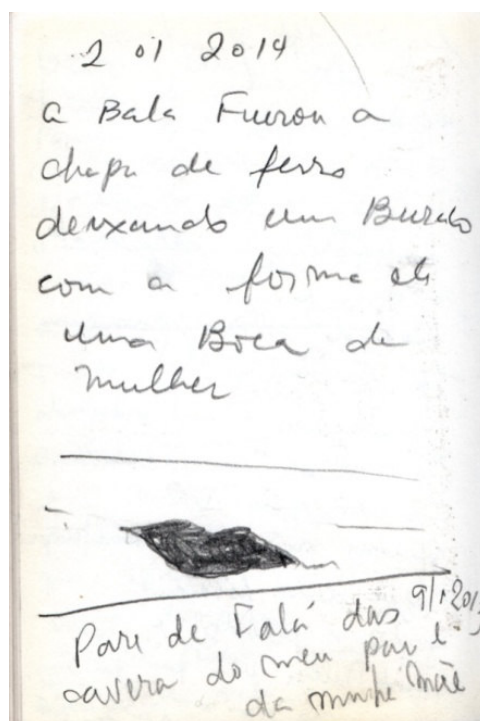 2 01 2014
a Bala Fuurou a
chapa de ferro
deixando um Buraco
com a forma de
uma Boca de
mulher
9/1 201
Pare de Falá das
cavera do meu pai e
da minha mãe